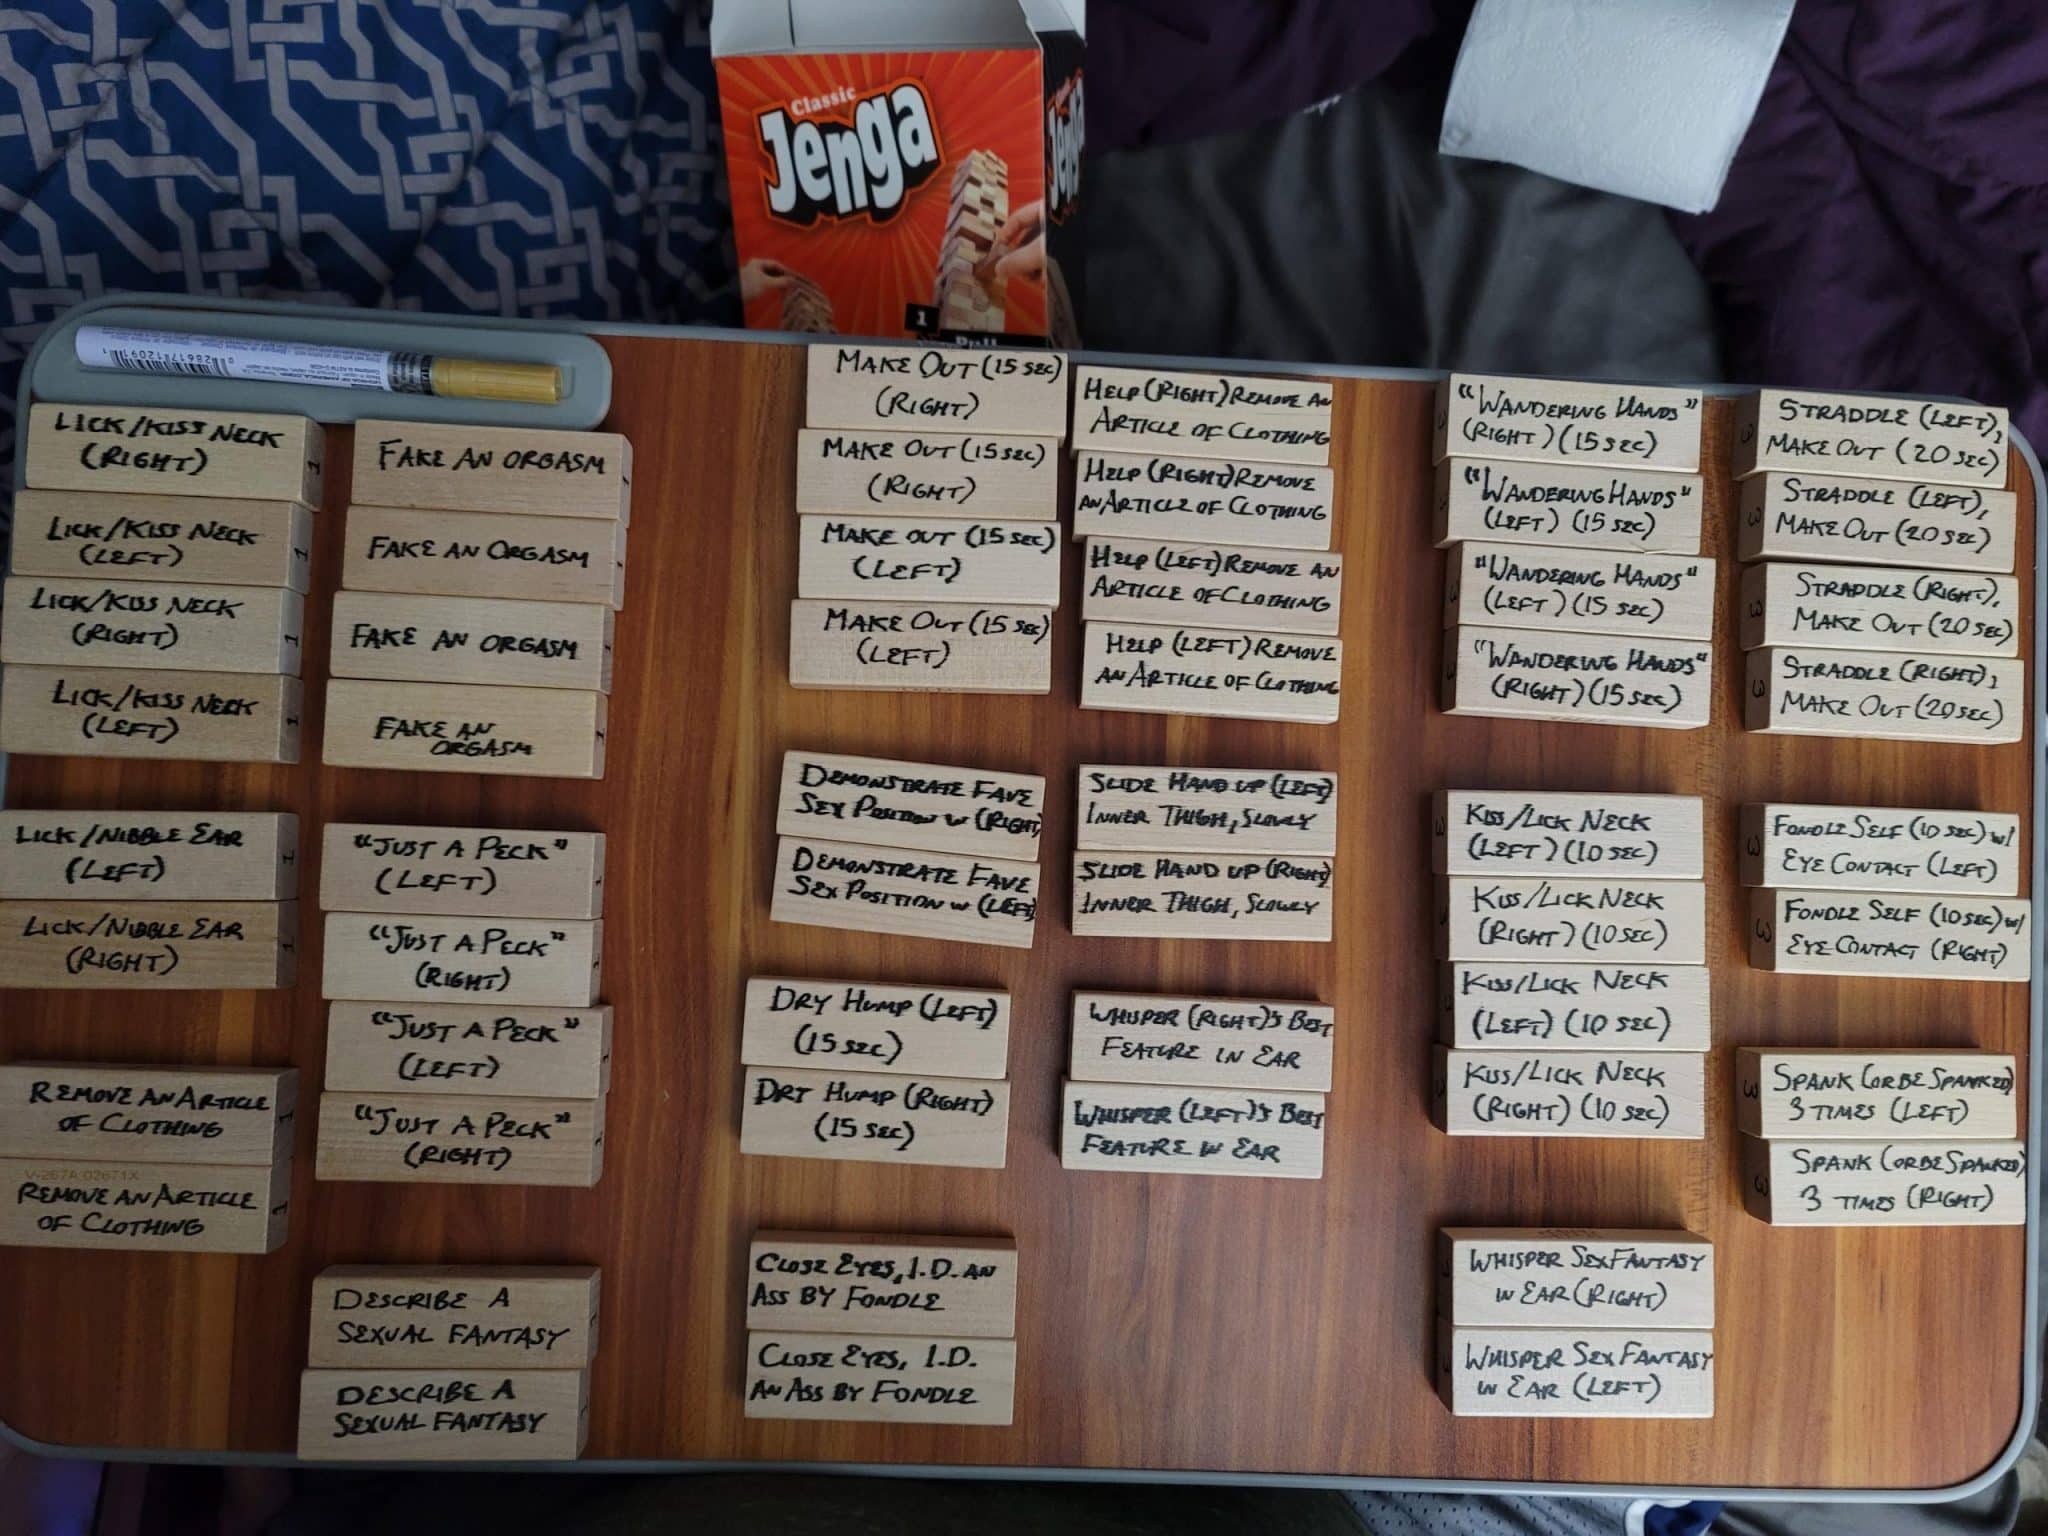 Classic
Jenga
Jenga
1
0 28617 12091 1
LICK/KISS NECK
(RIGHT)
1
LICK/KISS NECK
(LEFT)
1
LICK/KISS NECK
(RIGHT)
1
LICK/KISS NECK
(LEFT)
1
LICK/NIBBLE EAR
(LEFT)
1
LICK/NIBBLE EAR
(RIGHT)
1
REMOVE AN ARTICLE
OF CLOTHING
1
V-267A 02671X
REMOVE AN ARTICLE
OF CLOTHING
1
FAKE AN ORGASM
1
FAKE AN ORGASM
1
FAKE AN ORGASM
1
FAKE AN
ORGASM
1
"JUST A PECK"
(LEFT)
1
"JUST A PECK"
(RIGHT)
1
"JUST A PECK"
(LEFT)
1
"JUST A PECK"
(RIGHT)
1
DESCRIBE A
SEXUAL FANTASY
1
DESCRIBE A
SEXUAL FANTASY
1
MAKE OUT (15 SEC)
(RIGHT)
MAKE OUT (15 SEC)
(RIGHT)
MAKE OUT (15 SEC)
(LEFT)
MAKE OUT (15 SEC)
(LEFT)
DEMONSTRATE FAVE
SEX POSITION W (RIGHT)
DEMONSTRATE FAVE
SEX POSITION W (LEFT)
DRY HUMP (LEFT)
(15 SEC)
DRY HUMP (RIGHT)
(15 SEC)
CLOSE EYES, I.D. AN
ASS BY FONDLE
CLOSE EYES, I.D.
AN ASS BY FONDLE
HELP (RIGHT) REMOVE AN
ARTICLE OF CLOTHING
HELP (RIGHT) REMOVE
AN ARTICLE OF CLOTHING
HELP (LEFT) REMOVE AN
ARTICLE OF CLOTHING
HELP (LEFT) REMOVE
AN ARTICLE OF CLOTHING
SLIDE HAND UP (LEFT)
INNER THIGH, SLOWLY
SLIDE HAND UP (RIGHT)
INNER THIGH, SLOWLY
WHISPER (RIGHT)'S BEST
FEATURE IN EAR
WHISPER (LEFT)'S BEST
FEATURE IN EAR
"WANDERING HANDS"
(RIGHT) (15 SEC)
3
"WANDERING HANDS"
(LEFT) (15 SEC)
3
"WANDERING HANDS"
(LEFT) (15 SEC)
3
"WANDERING HANDS"
(RIGHT) (15 SEC)
3
KISS/LICK NECK
(LEFT) (10 SEC)
3
KISS/LICK NECK
(RIGHT) (10 SEC)
3
KISS/LICK NECK
(LEFT) (10 SEC)
3
KISS/LICK NECK
(RIGHT) (10 SEC)
3
WHISPER SEX FANTASY
IN EAR (RIGHT)
WHISPER SEX FANTASY
IN EAR (LEFT)
STRADDLE (LEFT),
MAKE OUT (20 SEC)
3
STRADDLE (LEFT),
MAKE OUT (20 SEC)
3
STRADDLE (RIGHT),
MAKE OUT (20 SEC)
3
STRADDLE (RIGHT),
MAKE OUT (20 SEC)
3
FONDLE SELF (10 SEC) W/
EYE CONTACT (LEFT)
3
FONDLE SELF (10 SEC) W/
EYE CONTACT (RIGHT)
3
SPANK (OR BE SPANKED)
3 TIMES (LEFT)
3
SPANK (OR BE SPANKED)
3 TIMES (RIGHT)
3